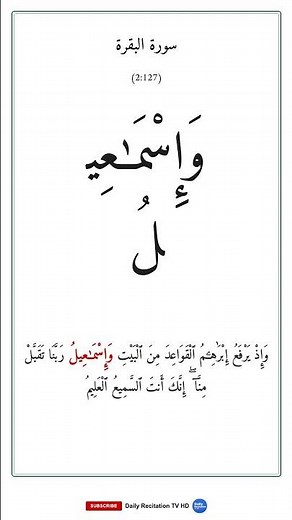 سورة البقرة
(2:127)
وَإِسْمَـٰعِيـ
ـلُ
وَإِذْ يَرْفَعُ إِبْرَٰهِـۧمُ ٱلْقَوَاعِدَ مِنَ ٱلْبَيْتِ وَإِسْمَـٰعِيلُ رَبَّنَا تَقَبَّلْ
مِنَّآ ۖ إِنَّكَ أَنتَ ٱلسَّمِيعُ ٱلْعَلِيمُ
SUBSCRIBE Daily Recitation TV HD